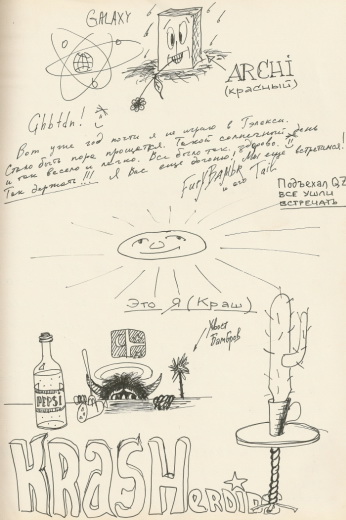 GALAXY
ARCHi
(красный)
Ghbtdn!
Вот уже год почти я не играю в Гэлекси.
Стало быть пора прощатся. Такой солнечный день
и так весело и легко. Все было так, здорово.
Так держать!!! Я Вас ещё догоню! Мы ещё встретимся!
FuryBAMbr Tail
и его
Подъехал QZ
ВСЕ УШЛИ
ВСТРЕЧАТЬ
Это Я (Краш)
Хвост
Бамбров
PEPSI
KRASHERDID